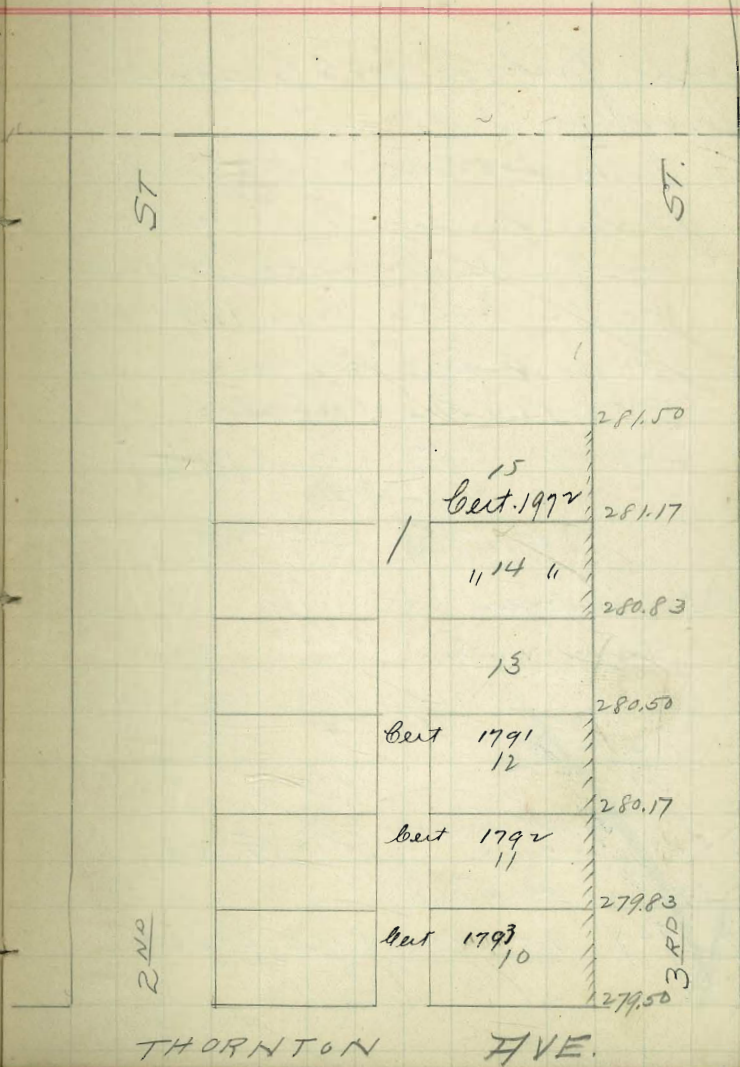 ST
ST.
281.50
15
Cert. 1972
281.17
1
" 14 "
280.83
13
280.50
Cert 1791
12
280.17
Cert 1792
11
279.83
Cert 1793
10
279.50
2ND
3RD
THORNTON AVE.